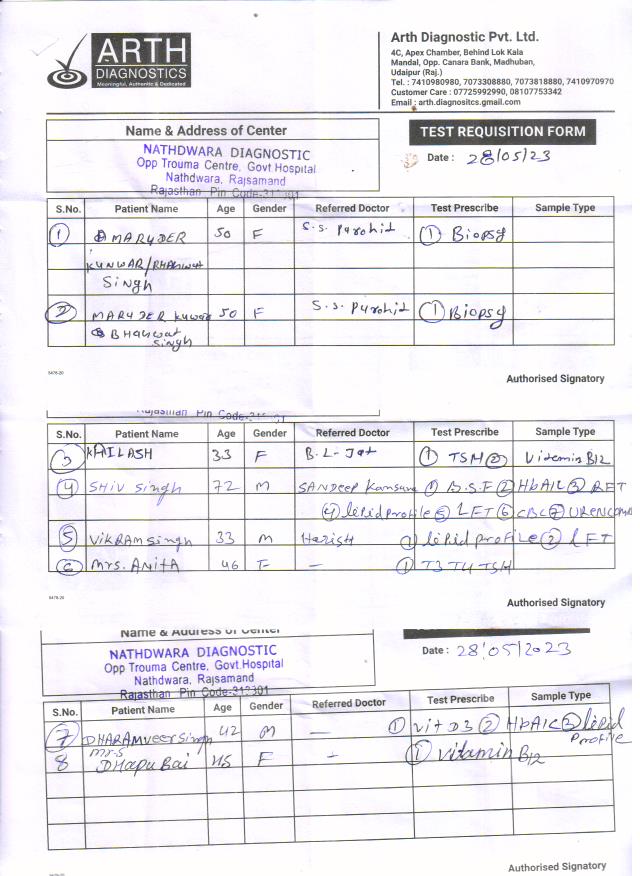 ARTH
DIAGNOSTICS
Meaningful, Authentic & Dedicated
Arth Diagnostic Pvt. Ltd.
4C, Apex Chamber, Behind Lok Kala
Mandal, Opp. Canara Bank, Madhuban,
Udaipur (Raj.)
Tel. : 7410980980, 7073308880, 7073818880, 7410970970
Customer Care : 07725992990, 08107753342
Email : arth.diagnositcs.gmail.com
Name & Address of Center
TEST REQUISITION FORM
NATHDWARA DIAGNOSTIC
Opp Trouma Centre, Govt.Hospital
Nathdwara, Rajsamand
Rajasthan Pin Code-313301
Date : 28/05/23
S.No. Patient Name Age Gender Referred Doctor Test Prescribe Sample Type
1 MARUDER 50 F S.S. Purohit 1 Biopsy
KUNWAR/BHANWAT
Singh
2 MARUDER KUWAR 50 F S.S. Purohid 1 Biopsy
BHANWAT
Singh
5478-20
Authorised Signatory
Rajasthan Pin Code-313301
S.No. Patient Name Age Gender Referred Doctor Test Prescribe Sample Type
3 KAILASH 33 F B.L-Jat 1 TSH 2 Vitamin B12
4 SHIV Singh 72 M SANDEEP Kansara 1 B.S.F 2 HbA1C 3 RFT
4 lipid profile 5 LFT 6 CBC 7 UREN COMP
5 VIKRAM Singh 33 M Harish 1 lipid profile 2 LFT
6 Mrs. Anita 46 F — 1 T3 T4 TSH
5478-20
Authorised Signatory
Name & Address of Center
NATHDWARA DIAGNOSTIC
Opp Trouma Centre, Govt.Hospital
Nathdwara, Rajsamand
Rajasthan Pin Code-313301
Date : 28/05/2023
S.No. Patient Name Age Gender Referred Doctor Test Prescribe Sample Type
7 DHARAMVEER Singh 42 M — 1 Vit D3 2 HbA1C 3 lipid
Profile
8 Mrs Dhapu Bai 45 F — 1 Vitamin B12
Authorised Signatory